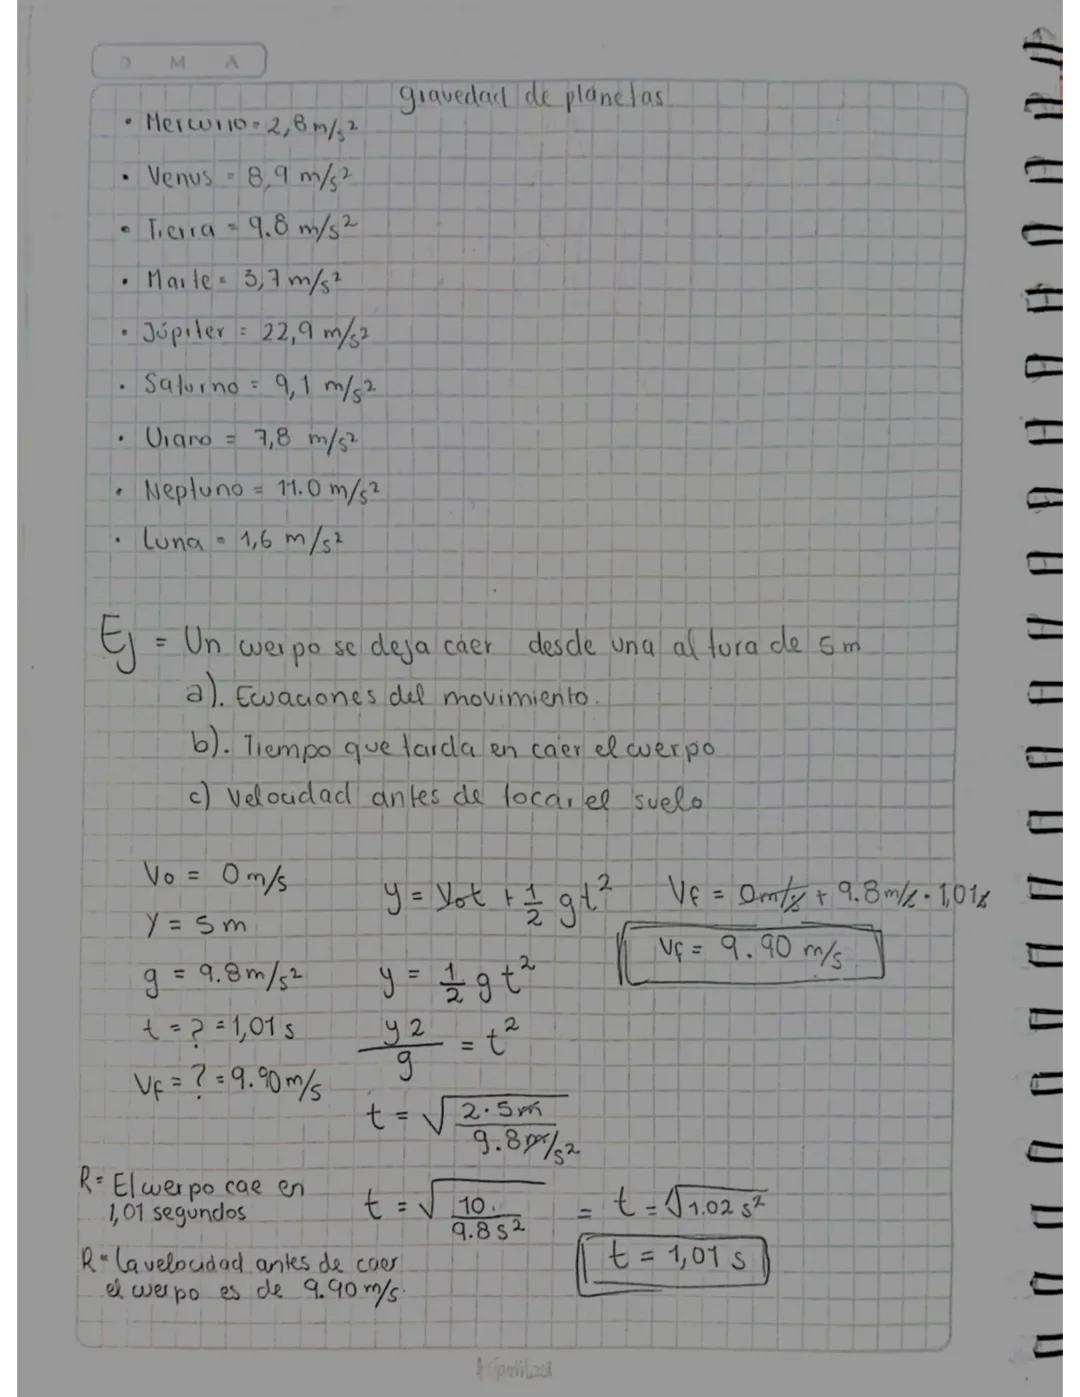 D M A
gravedad de planetas
• Mercurio = 2,8 m/s²
• Venus = 8,9 m/s²
• Tierra = 9.8 m/s²
• Marte = 3,7 m/s²
• Júpiter = 22,9 m/s²
• Saturno = 9,1 m/s²
• Urano = 7,8 m/s²
• Neptuno = 11.0 m/s²
• Luna = 1,6 m/s²
Ej = Un cuerpo se deja caer desde una altura de 5 m
a). Ecuaciones del movimiento.
b). Tiempo que tarda en caer el cuerpo
c) Velocidad antes de tocar el suelo
Vo = 0 m/s
Y = 5 m
g = 9.8 m/s²
t = ? = 1,01 s
Vf = ? = 9.90 m/s
y = Vot + 1/2 gt²
y = 1/2 gt²
y2/g = t²
t = √2·5m/9.8m/s²
t = √10/9.8s² = t = √1.02 s²
t = 1,01 s
Vf = 0m/s + 9.8m/s · 1,01s
Vf = 9.90 m/s
R= El cuerpo cae en
1,01 segundos
R= La velocidad antes de caer
el cuerpo es de 9.90 m/s.